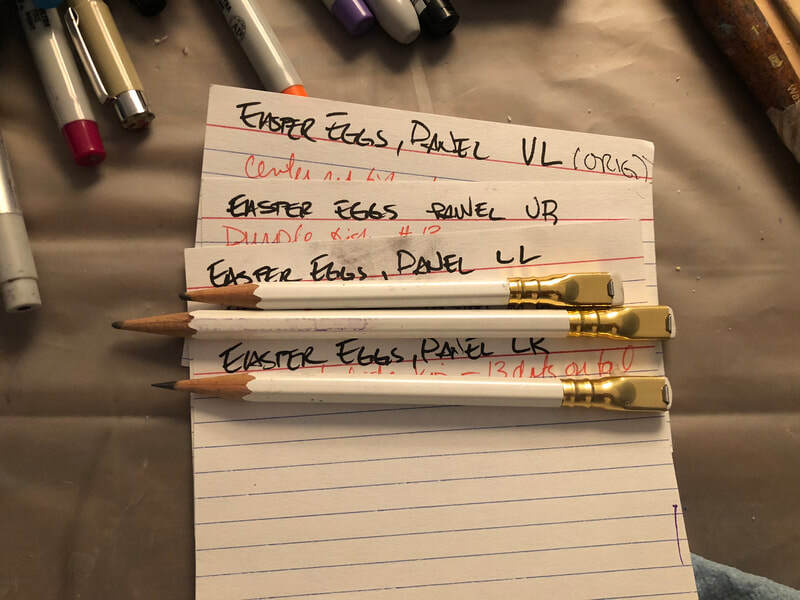 EASTER EGGS, PANEL UL (ORIG)
Center
EASTER EGGS PANEL UR
Purple fish #13
EASTER EGGS, PANEL LL
EASTER EGGS, PANEL LR
– 13 dots on tail